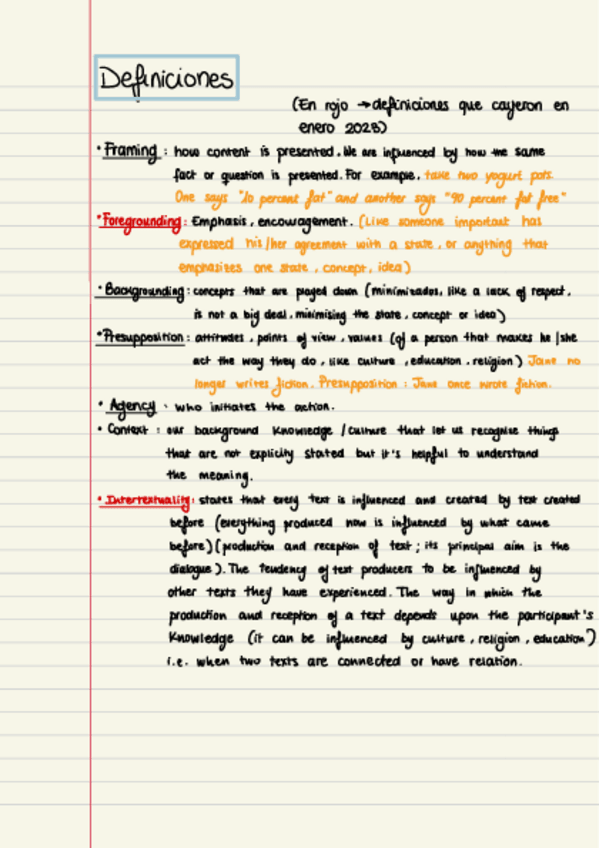 Definiciones
(En rojo → definiciones que cayeron en
enero 2023)
• Framing : how content is presented. We are influenced by how the same
fact or question is presented. For example, take two yogurt pots.
One says "10 percent fat" and another says "90 percent fat free"
• Foregrounding: Emphasis, encouragement. (Like someone important has
expressed his/her agreement with a state, or anything that
emphasizes one state, concept, idea)
• Backgrounding: concepts that are played down (minimizados, like a lack of respect,
is not a big deal, minimising the state, concept or idea)
• Presupposition: attitudes, points of view, values (of a person that makes he/she
act the way they do, like culture, education, religion) Jane no
longer writes fiction. Presupposition : Jane once wrote fiction.
• Agency : who initiates the action.
• Context : our background knowledge / culture that let us recognise things
that are not explicitly stated but it's helpful to understand
the meaning.
• Intertextuality: states that every text is influenced and created by text created
before (everything produced now is influenced by what came
before)(production and reception of text; its principal aim is the
dialogue). The tendency of text producers to be influenced by
other texts they have experienced. The way in which the
production and reception of a text depends upon the participant's
knowledge (it can be influenced by culture, religion, education)
i.e. when two texts are connected or have relation.